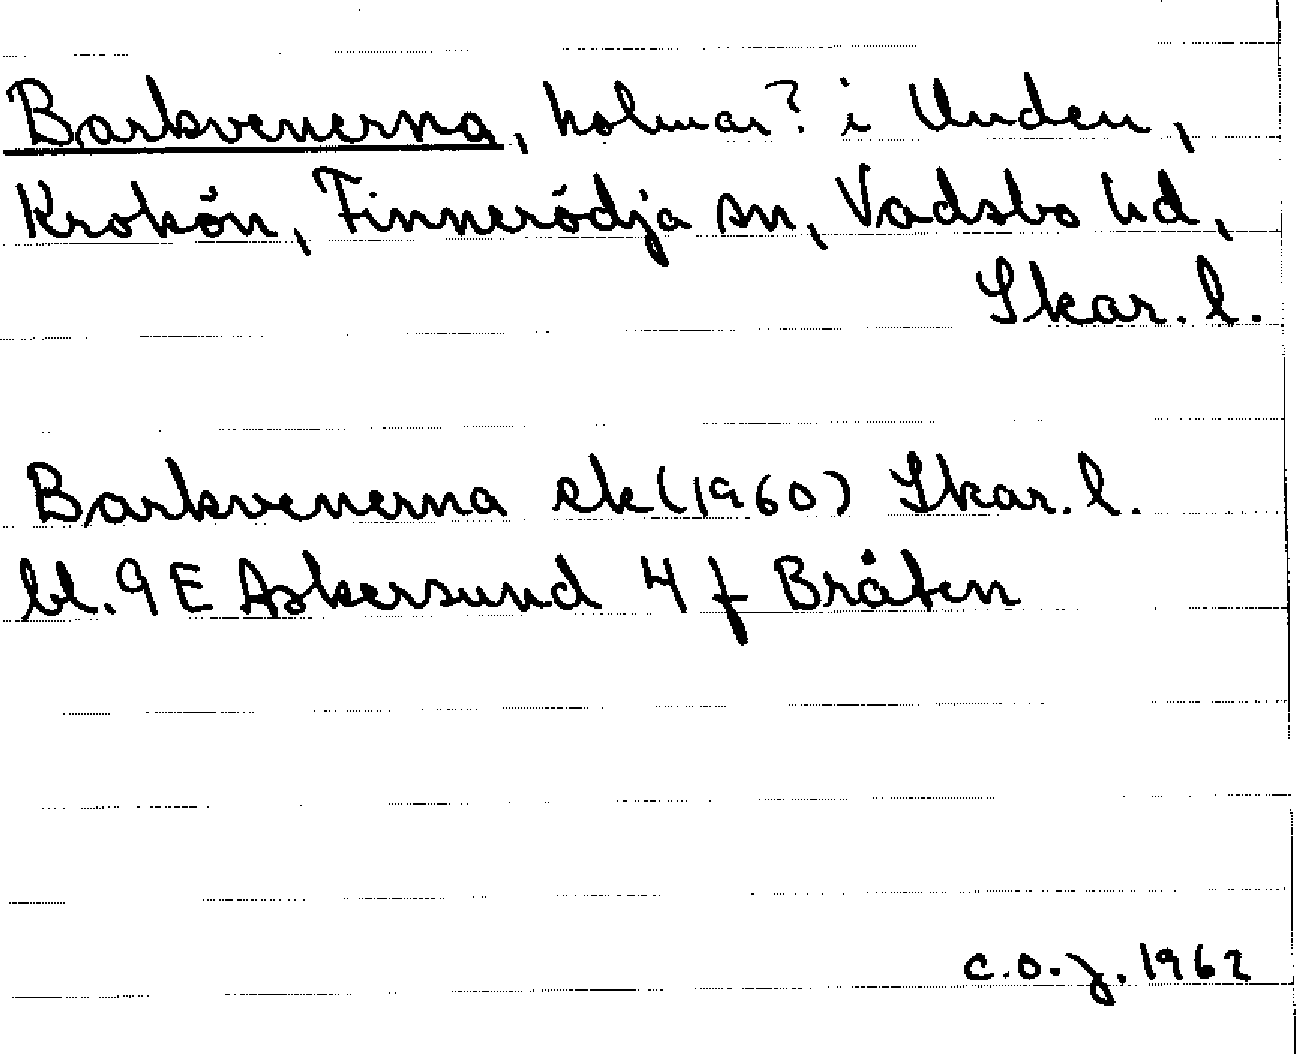 Barkvenerna, holmar? i Unden,
Krokön, Finnerödja sn, Vadsbo hd,
Skar. l.
Barkvenerna ek (1960) Skar. l.
bl. 9 E Askersund 4 f Bråten
C.O.J. 1962